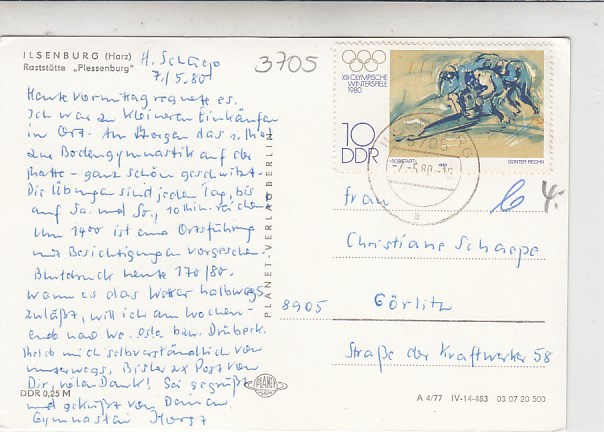 ILSENBURG (Harz)
Raststätte „Plessenburg"
7./5.80
3705
Heute vormittag regnete es.
Ich war zu kleineren Einkäufen
in Ort. Am Morgen das 1. Mal
zur Bodengymnastik auf der
Matte - ganz schön geschwitzt.
Die Übungen sind jeden Tag, bis
auf Sa. und So., 10 Min. reichen
Um 1400 ist eine Ortsführung
mit Besichtigungen vorgesehen.
Blutdruck heute 170/80.
wenn es das Wetter halbwegs
zuläßt, will ich am Wochen-
ende nach We. oder bzw. Drübeck.
mich selbverständlich von
unterwegs. Bisher 2x Post von
Dir, vielen Dank! Sei gegrüßt
und geküßt von Deinem
Gymnastik Horst
DDR 0,25 M
PLANET-VERLAG BERLIN
PLANET
XIII. OLYMPISCHE
WINTERSPIELE
1980
10
DDR
1980
GÜNTER RECHN
3705
-7.-5.80-16
a
4.-
Frau
Christiane Schaepe
8905 Görlitz
Straße der Kraftwerker 58
A 4/77 IV-14-483 03 07 20 500